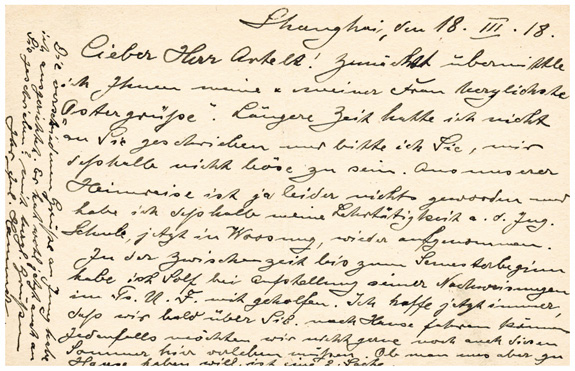 Shanghai, den 18. III. 18.
Lieber Herr Artelt! Zunächst übermittle
ich Ihnen meine u. meiner Frau herzlichste
"Ostergrüße". Längere Zeit hatte ich nicht
an Sie geschrieben und bitte ich Sie, mir
deßhalb nicht böse zu sein. Aus unserer
Heimreise ist ja leider nichts geworden und
habe ich deßhalb meine Lehrtätigkeit a. d. Ing.
Schule, jetzt in Woosung, wieder aufgenommen.
In der Zwischenzeit bis zum Semesterbeginn
habe ich Solf bei Aufstellung seiner Nachweisungen
im Ts. U. F. mit geholfen. Ich hoffe jetzt immer,
daß wir bald über Sib. nach Hause fahren können
Jedenfalls möchten wir nicht gerne noch auch diesen
Sommer hier verleben müssen. Ob man uns aber zu
Hause haben will, ist eine 2. Sache.
Die verschiedenen Grüße an Jung habe
ich ausgerichtet. Er hat wohl jetzt auch an
Sie geschrieben. Mit besten Grüßen
Ihr